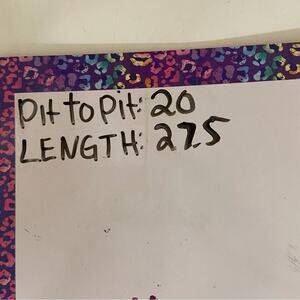 Pit to Pit: 20
LENGTH: 27.5